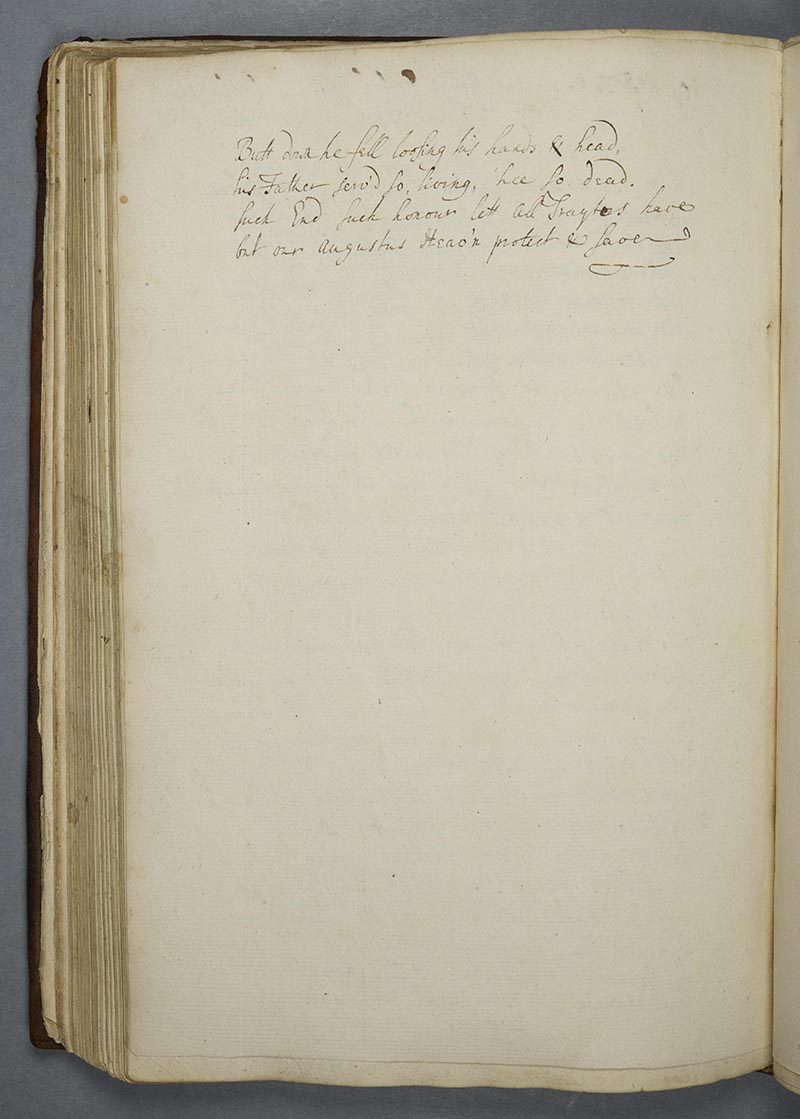 Butt down he fell loosing his hands & head,
his Father serv'd so, living, hee so dead.
such End such honour lett all Traytors have
but our Augustus Heav'n protect & save